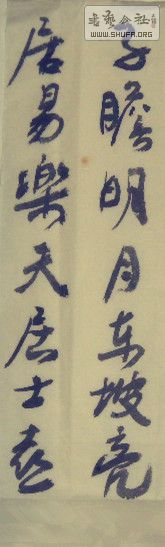 書藝公社
WWW.SHUFA.ORG
子瞻明月东坡亮
居易樂天居士